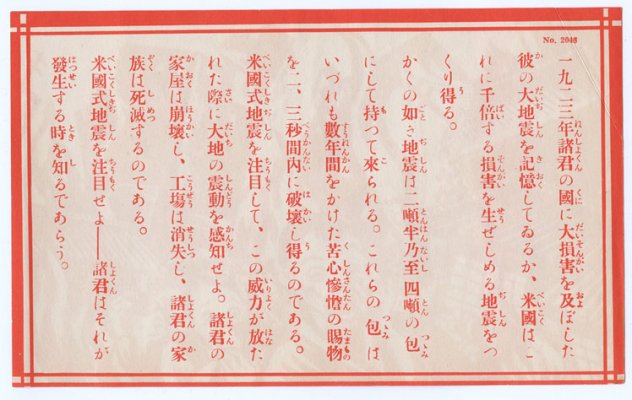 No. 2048
一九二三年諸君の國に大損害を及ぼした
彼の大地震を記憶してゐるか、米國はこ
れに千倍する損害を生ぜしめる地震をつ
くり得る。
かくの如き地震は二噸半乃至四噸の包
にして持つて來られる。これらの包は
いづれも數年間をかけた苦心慘憺の賜物
を二、三秒間内に破壞し得るのである。
米國式地震を注目して、この威力が放た
れた際に大地の震動を感知せよ。諸君の
家屋は崩壞し、工場は消失し、諸君の家
族は死滅するのである。
米國式地震を注目せよ――諸君はそれが
發生する時を知るであらう。